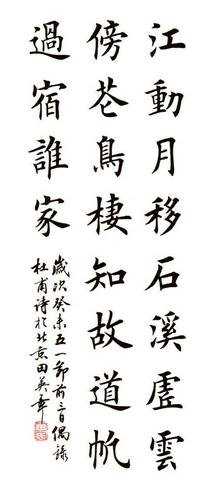 江動月移石溪虛雲
傍花鳥棲知故道帆
過宿誰家
歲次癸未五一節前三日偶錄
杜甫詩於北京田英章